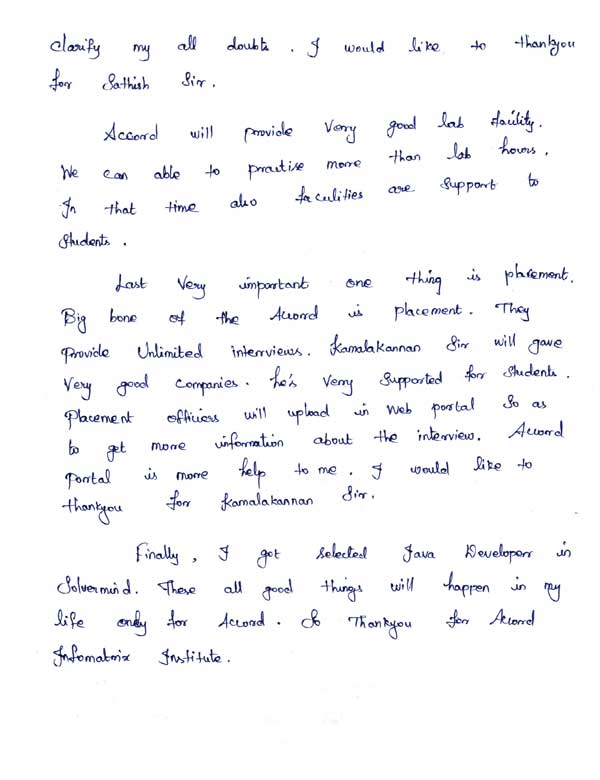 clarify my all doubts. I would like to thankyou
for Sathish Sir.
Accord will provide Very good lab facility.
We can able to practise more than lab hours.
In that time also faculities are support to
Students.
Last Very important one thing is placement.
Big bone of the Accord is placement. They
provide Unlimited interviews. Kamalakannan Sir will gave
Very good Companies. he's very supported for students.
Placement officiers will upload in web portal so as
to get more information about the interview. Accord
portal is more help to me. I would like to
thankyou for Kamalakannan Sir.
Finally, I got selected Java Developer in
Solvermind. These all good things will happen in my
life only for Accord. So Thankyou for Accord
Infomatrix Institute.